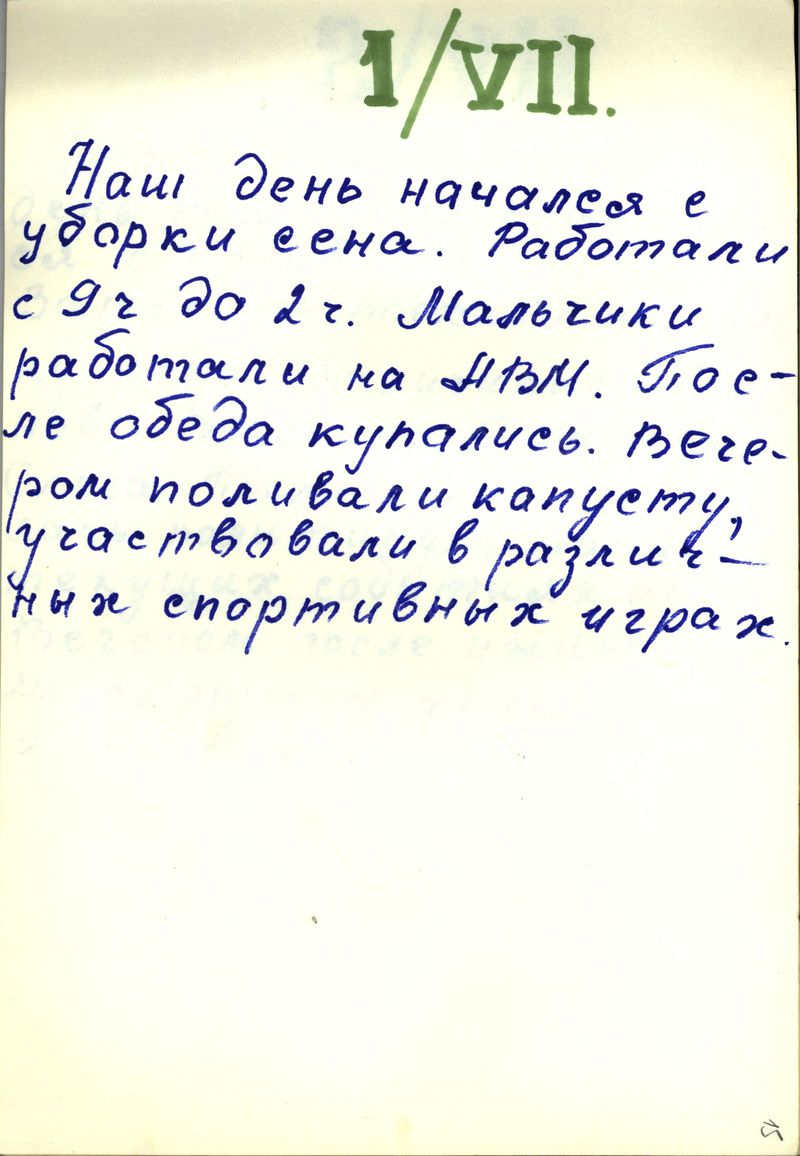 1/VII.
Наш день начался с
уборки сена. Работали
с 9ч до 2ч. Мальчики
работали на АВМ. Пос-
ле обеда купались. Вече-
ром поливали капусту,
участвовали в различ-
ных спортивных играх.